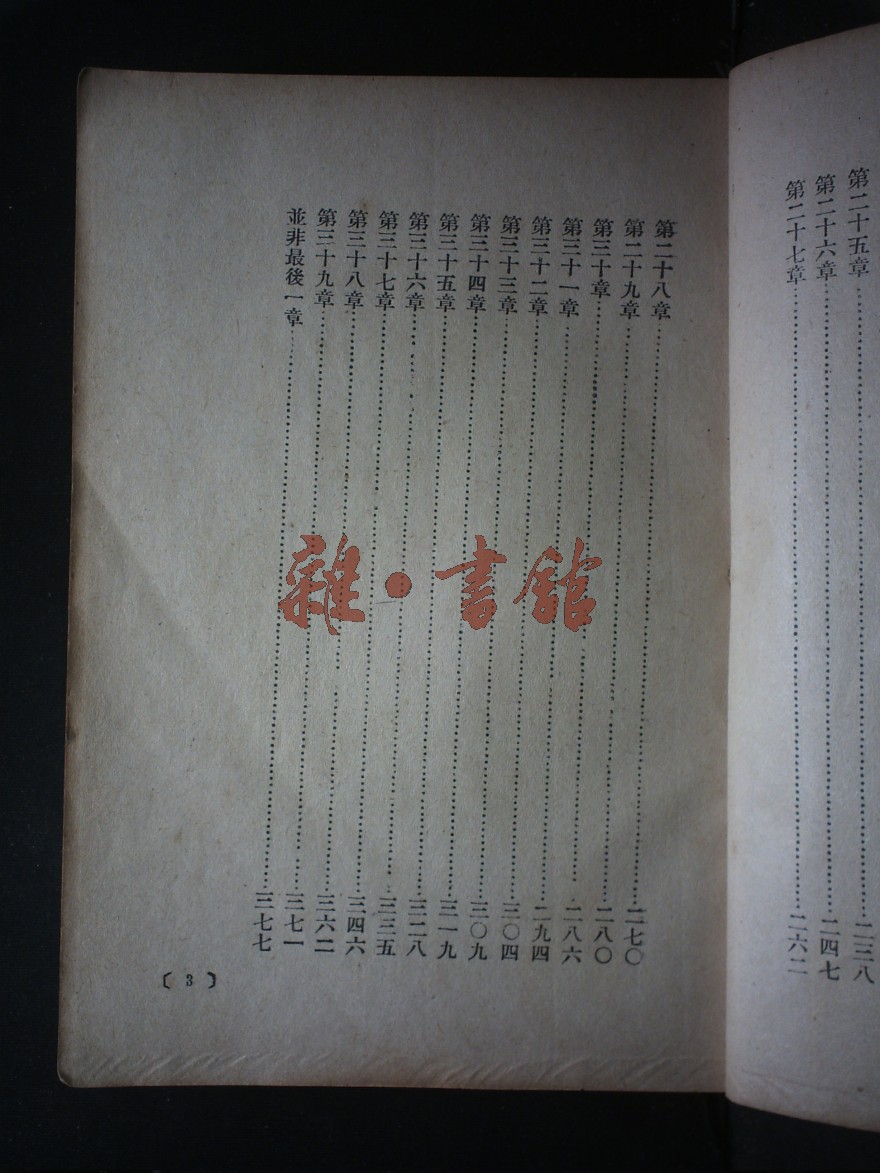 第二十五章……二三八
第二十六章……二四七
第二十七章……二六二
第二十八章……二七〇
第二十九章……二八〇
第三十章……二八六
第三十一章……二九四
第三十二章……三〇四
第三十三章……三〇九
第三十四章……三一九
第三十五章……三二八
第三十六章……三三五
第三十七章……三四六
第三十八章……三六二
第三十九章……三七一
並非最後一章……三七七
〔3〕
雜·書館